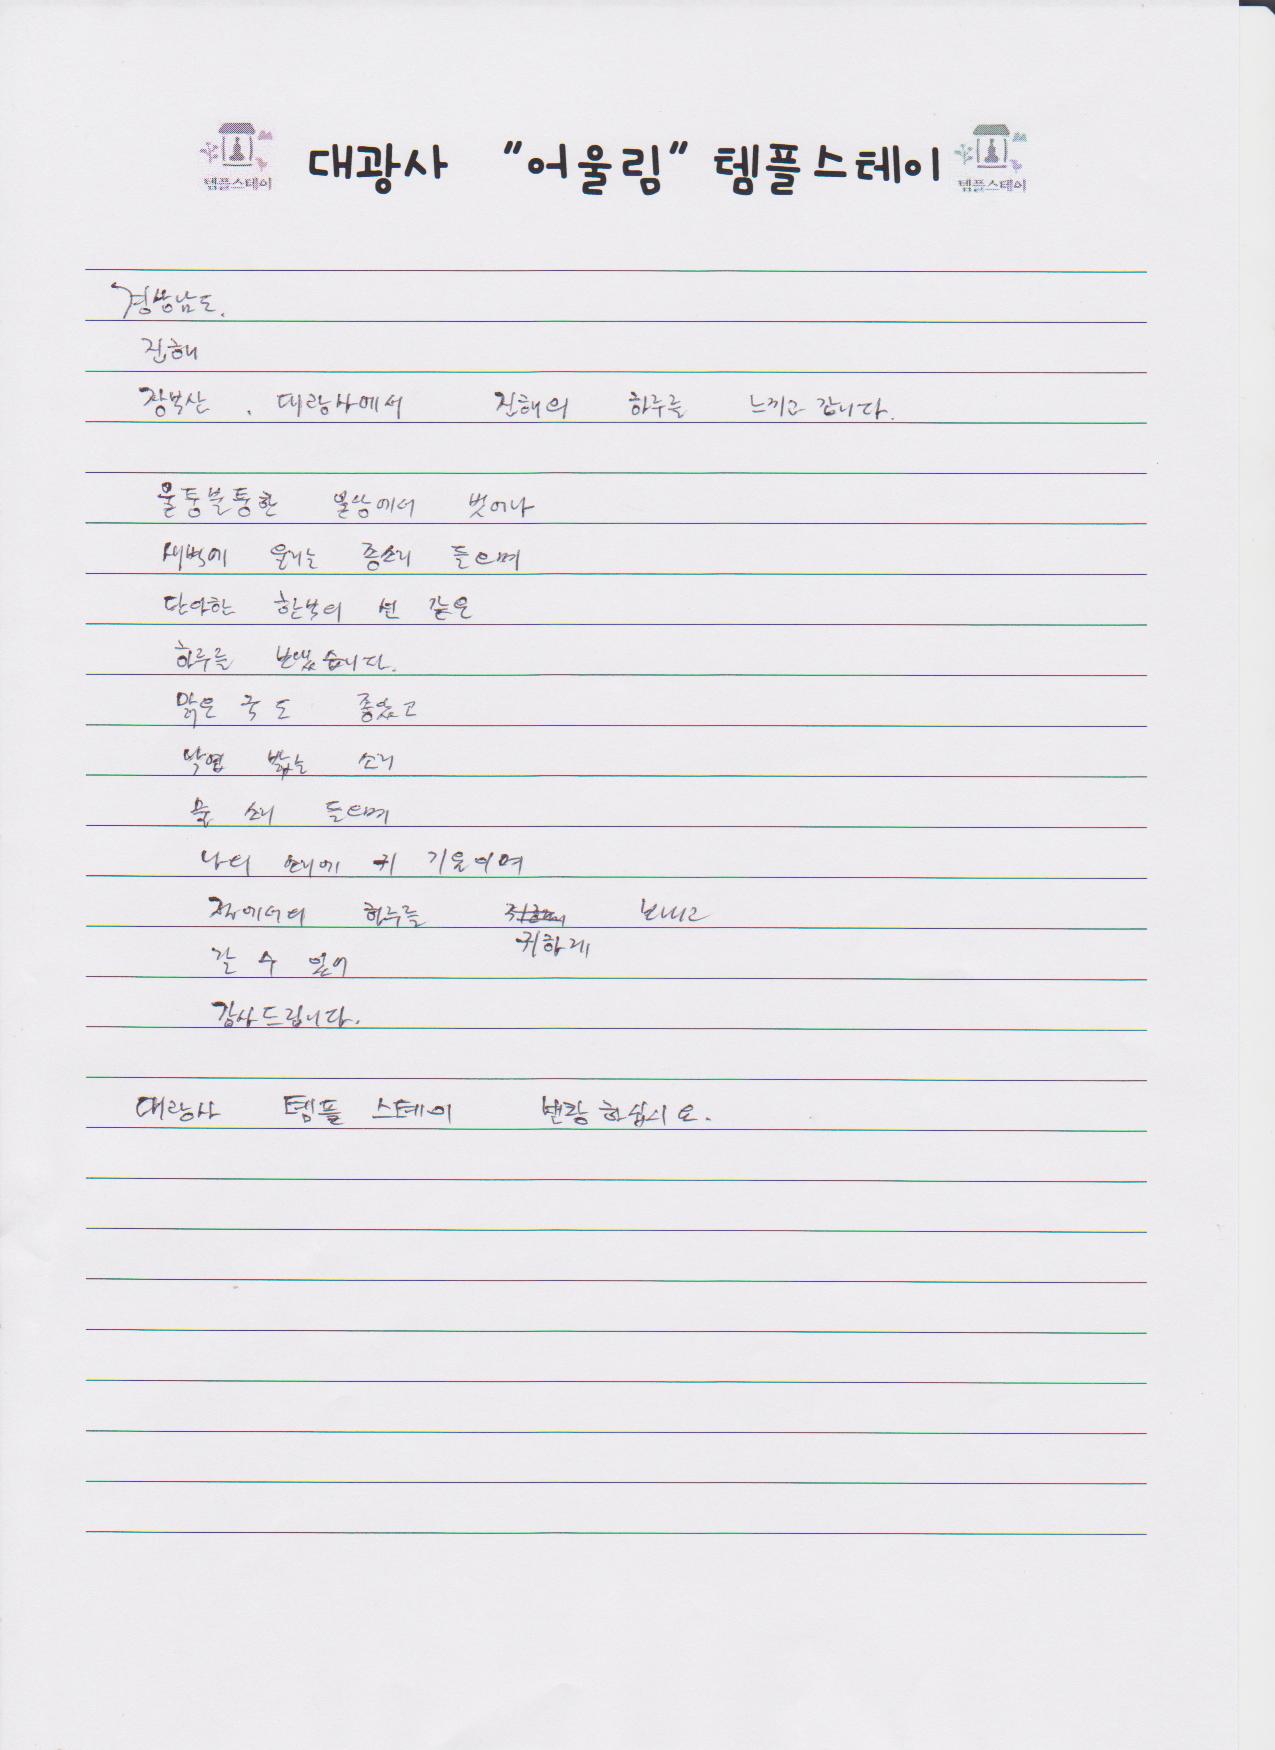 템플스테이
대광사 "어울림" 템플스테이
템플스테이
경상남도.
진해
장복산. 대광사에서 진해의 하루를 느끼고 갑니다.
울퉁불퉁한 일상에서 벗어나
새벽에 울리는 종소리 들으며
단아한 한복의 선 같은
하루를 보냈습니다.
맑은 국도 좋았고
낙엽 밟는 소리
물 소리 들으며
나의 소리에 귀 기울이며
하루를 보내고
귀하게
갈 수 있어
감사드립니다.
대광사 템플 스테이 번창하십시오.